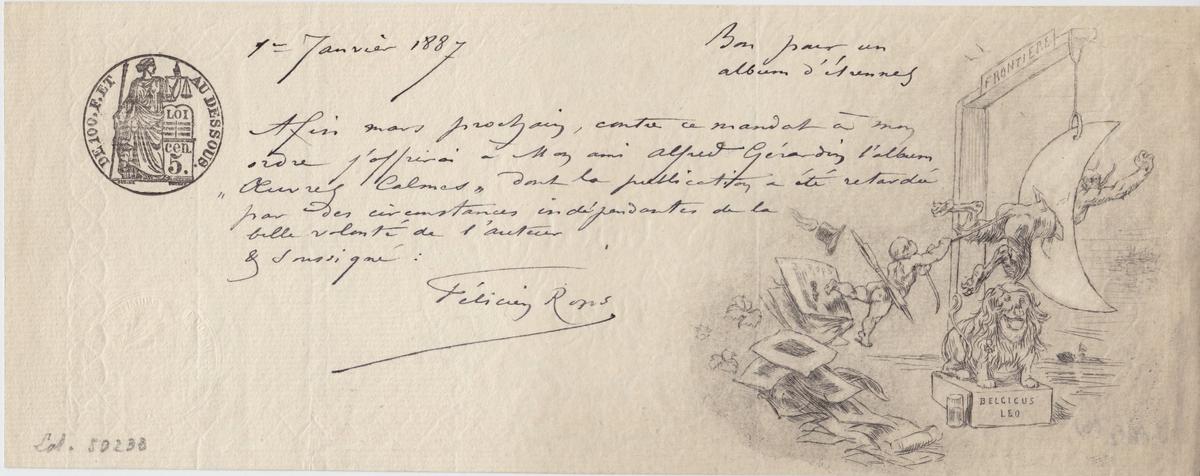 1er Janvier 1887
Bon pour un
album d'étrennes
DE 100.F. ET AU DESSOUS.
LOI
cen
5.
A fin mars prochain, contre ce mandat à mon
ordre j'offrirai à Mon ami Alfred Gérardin l'album
"Œuvres Calmes" dont la publication a été retardée
par des circonstances indépendantes de la
belle volonté de l'auteur
& soussigné :
Félicien Rops
FRONTIERE
BELGICUS
LEO
Col. 50238